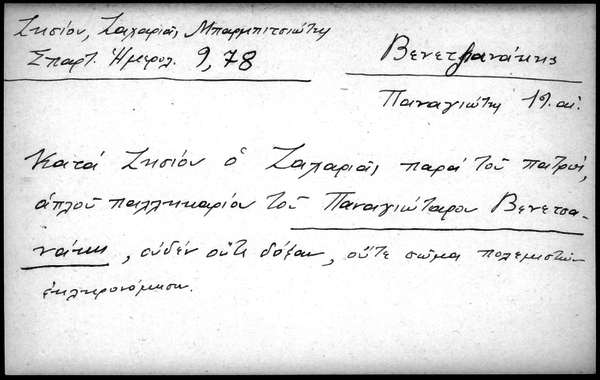 Ζησίου, Ζαχαριᾶς Μπαρμπιτσιώτης
Σπαρτ. Ἡμερολ. 9, 78
Βενετσανάκης
Παναγιώτης 19. αἰ.
Κατά Ζησίου ὁ Ζαχαριᾶς παρά τοῦ πατρός,
ἁπλοῦ παλληκαρίου τοῦ Παναγιώταρου Βενετσα-
νάκη, οὐδέν οὔτε δόξαν, οὔτε σῶμα πολεμιστῶν
ἐκληρονόμησε.